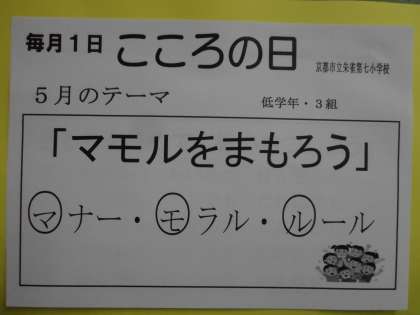 毎月1日 こころの日 京都市立朱雀第七小学校
5月のテーマ 低学年・3組
「マモルをまもろう」
マナー・モラル・ルール